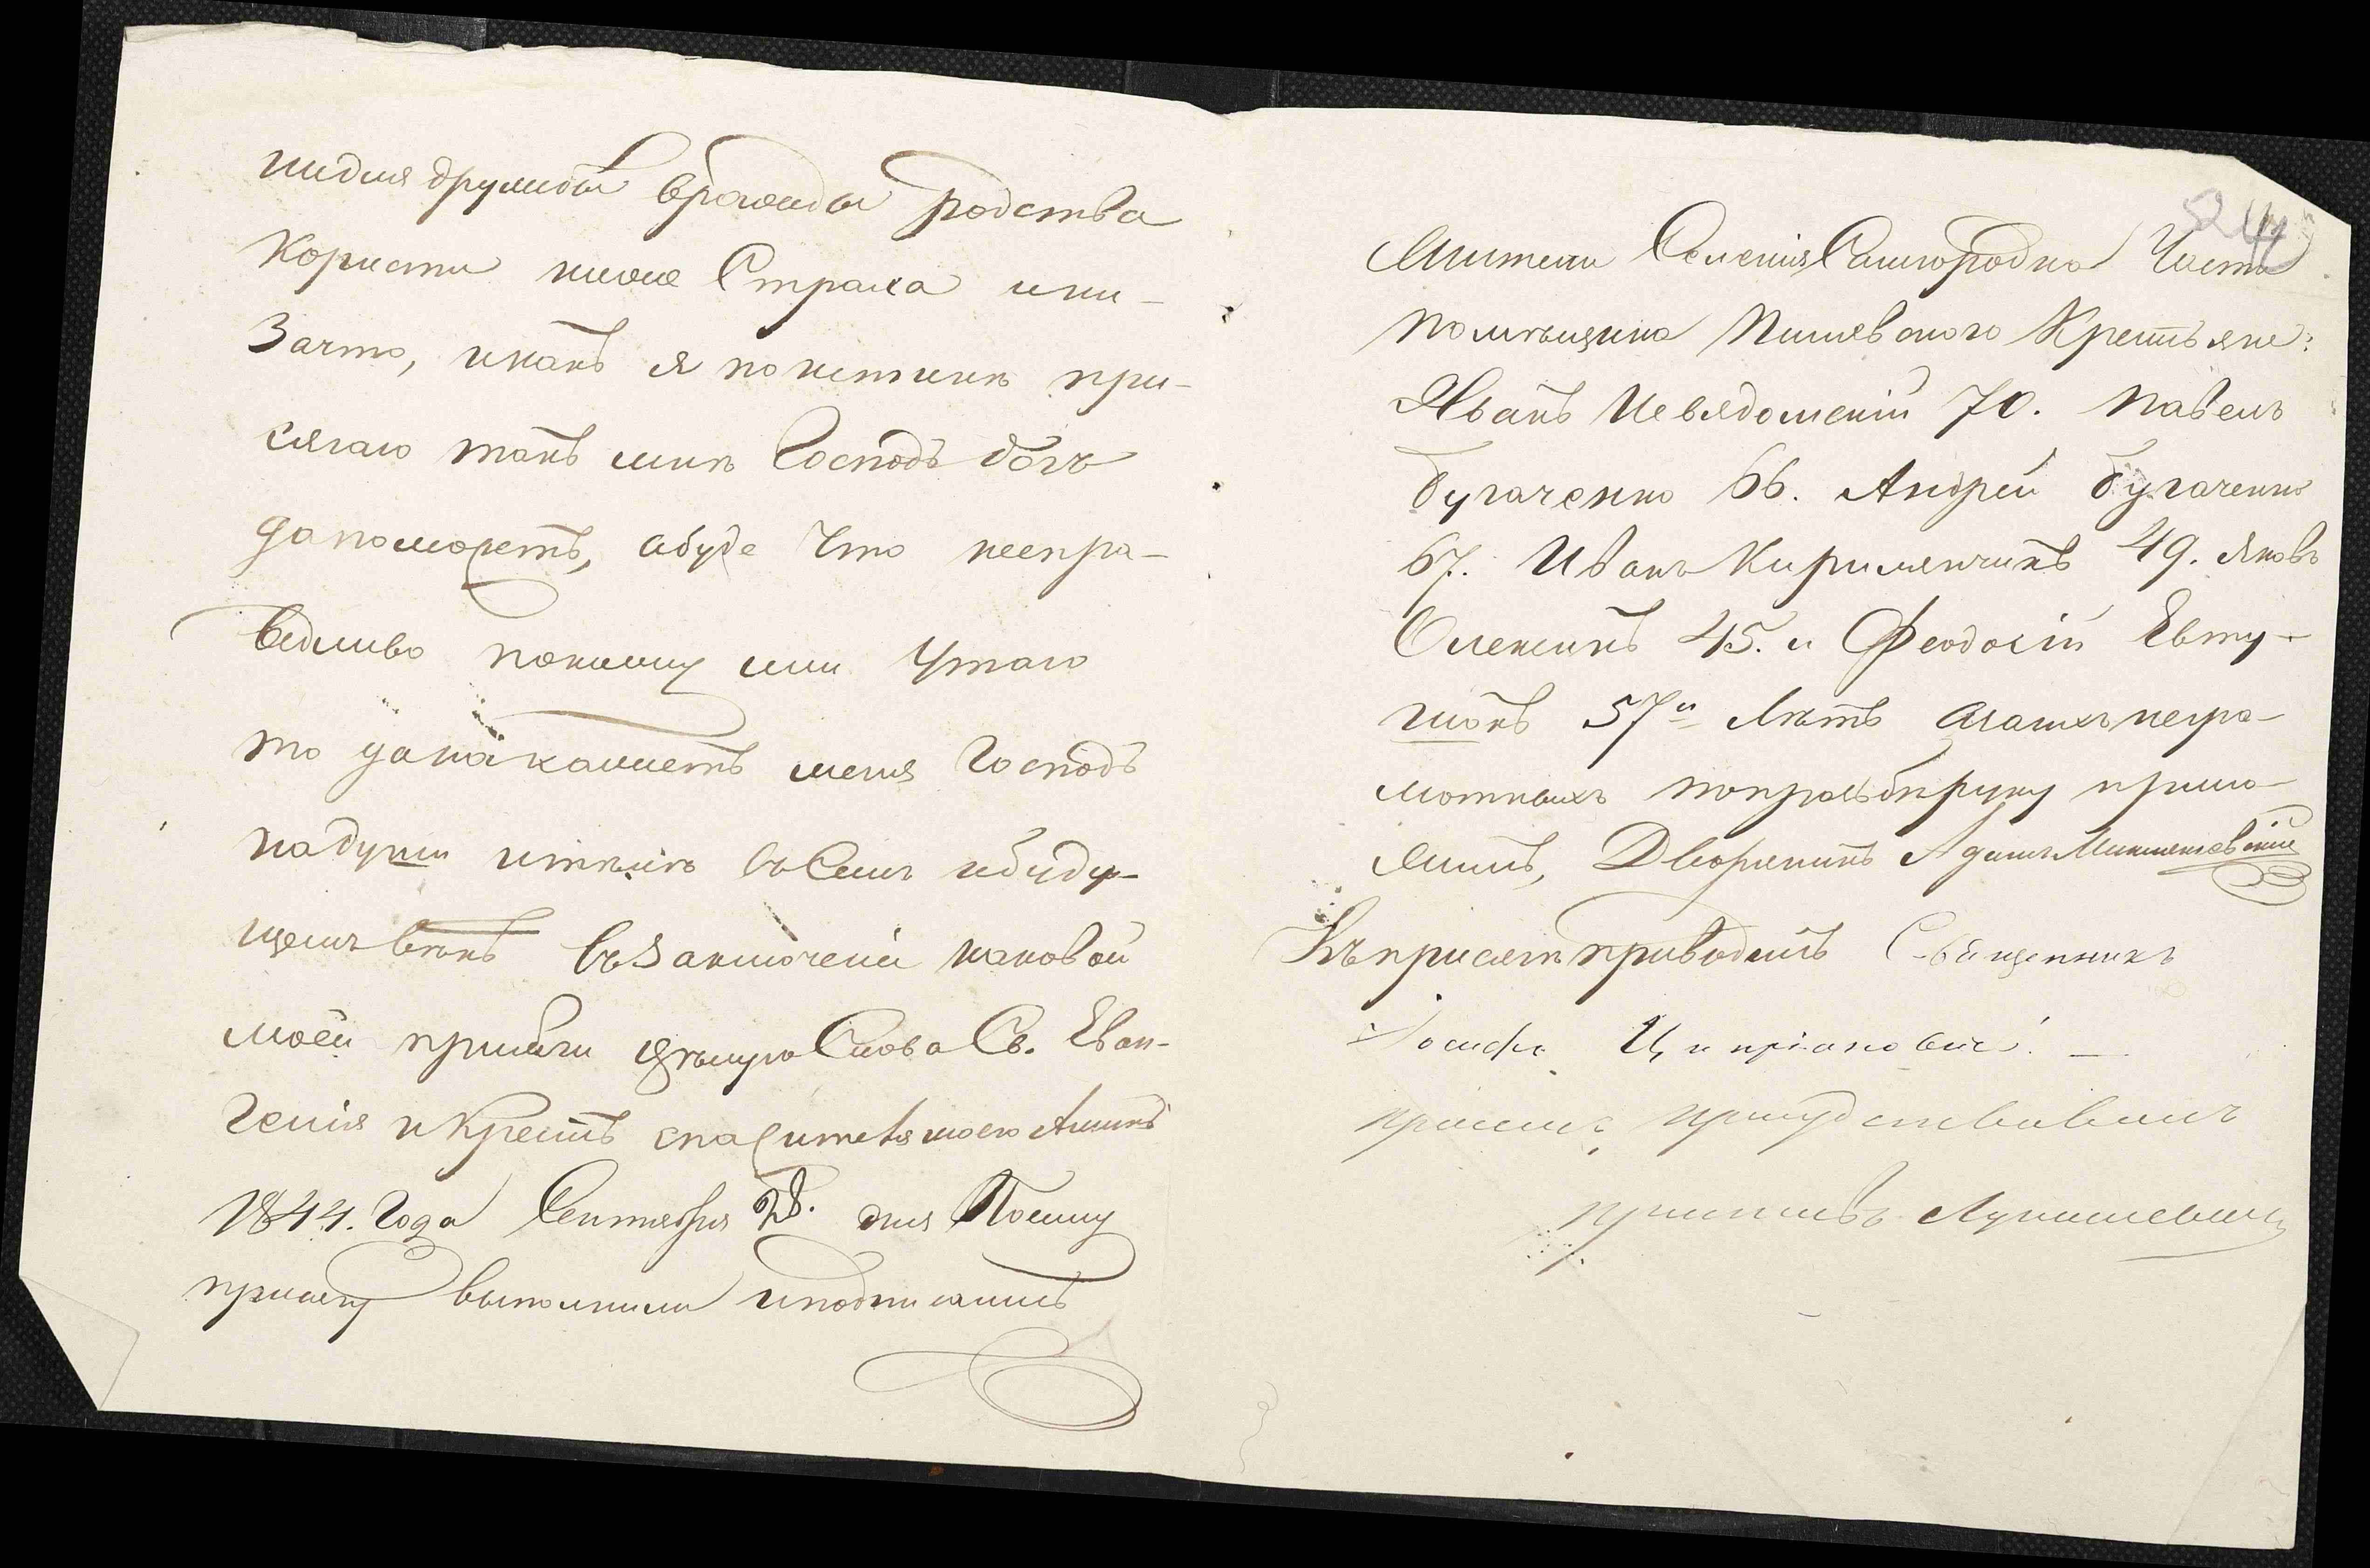 нидля дружбы вражды родства
Користи ниже Страха ини-
Зачто, икакъ я поистинѣ при-
сягаю такъ мнѣ Господь богъ
да поможетъ, абуде Что неспра-
ведливо покажу или Утаю
то да накажетъ меня Господь
надуши итѣлѣ въ Семъ ибуду-
щемъ вѣкѣ въ Заключеніи каковой
моей присяги цѣлую Слова Св. Еван-
гелія и Крестъ спасителя моего Аминь
1844. Года Сентября 28. дня Посему
присягу выполнили иподписались
524
Жители Селенія Самгородка Части
помѣщика Крестьяне:
Иванъ Невядомскій 70. Павелъ
Бугаченко 66. Андрей Бугаченко
67. Иванъ 49. Яковъ
Олексикъ 45. и Феодосій Евту-
шокъ 57и Лѣтъ азанихъ негра-
мотныхъ попрозьбѣ руку прило-
жилъ, Дворянинъ Адамъ
Къ присягѣ приводилъ Священникъ
Іосифъ Ципріановичь.
присемъ присудствовалъ